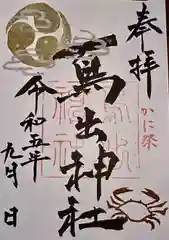 奉拝
かに祭
蔦出神社
令和五年
九月 日